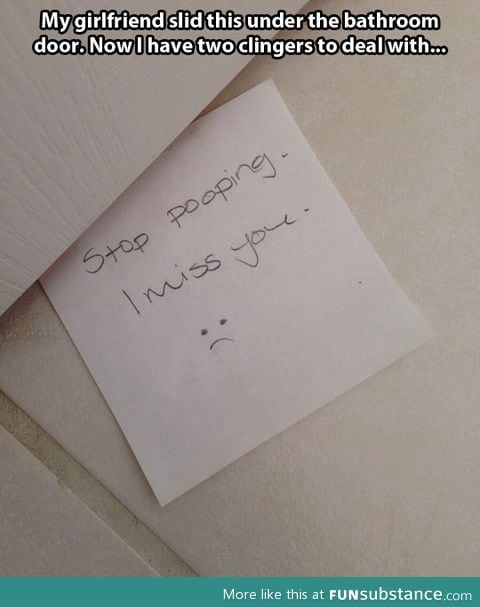 My girlfriend slid this under the bathroom
door. Now I have two clingers to deal with...
Stop pooping.
I miss you.
:(
More like this at FUNsubstance.com